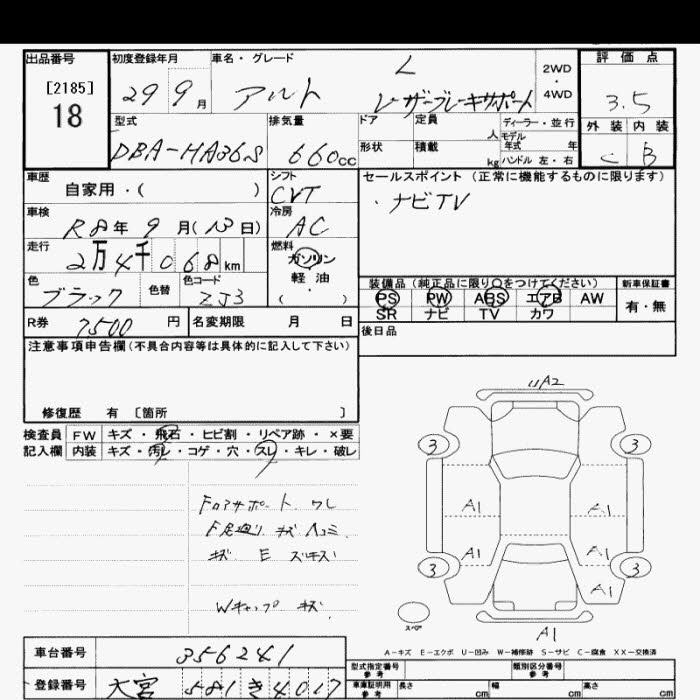 出品番号
[2185]
18
初度登録年月
29 9月
車名・グレード
アルト
L
レーザーブレーキサポート
2WD
・
4WD
評価点
3.5
外装 内装
C B
型式
DBA-HA36S
排気量
660cc
ドア
形状
定員
人
積載
kg
ディーラー・並行
モデル
年式 年
ハンドル 左・右
車歴
自家用・( )
シフト
CVT
セールスポイント (正常に機能するものに限ります)
・ナビTV
車検
R8年 9月(13日)
冷房
AC
走行
2万4千068km
燃料
ガソリン
軽油
( )
色
ブラック
色替
色コード
ZJ3
装備品(純正品に限り○をつけてください)
PS PW ABS エアB AW
SR ナビ TV カワ
新車保証書
有・無
R券 7500円
名変期限 月 日
後日品
注意事項申告欄(不具合内容等は具体的に記入して下さい)
修復歴 有 [箇所 ]
検査員 FW キズ・飛石・ヒビ割・リペア跡・×要
記入欄 内装 キズ・汚レ・コゲ・穴・スレ・キレ・破レ
キズ E スリキズ
Wキャップ キズ
UA2
3 3
A1 A1
A1 A1
3 3
A1
スペア
A1
A-キズ E-エクボ U-凹み W-補修跡 S-サビ C-腐食 XX-交換済
車台番号 356241
登録番号 大宮 581 き 4017
型式指定番号
参考
類別区分番号
参考
車庫証明用
参考
長さ cm 幅 cm 高さ cm